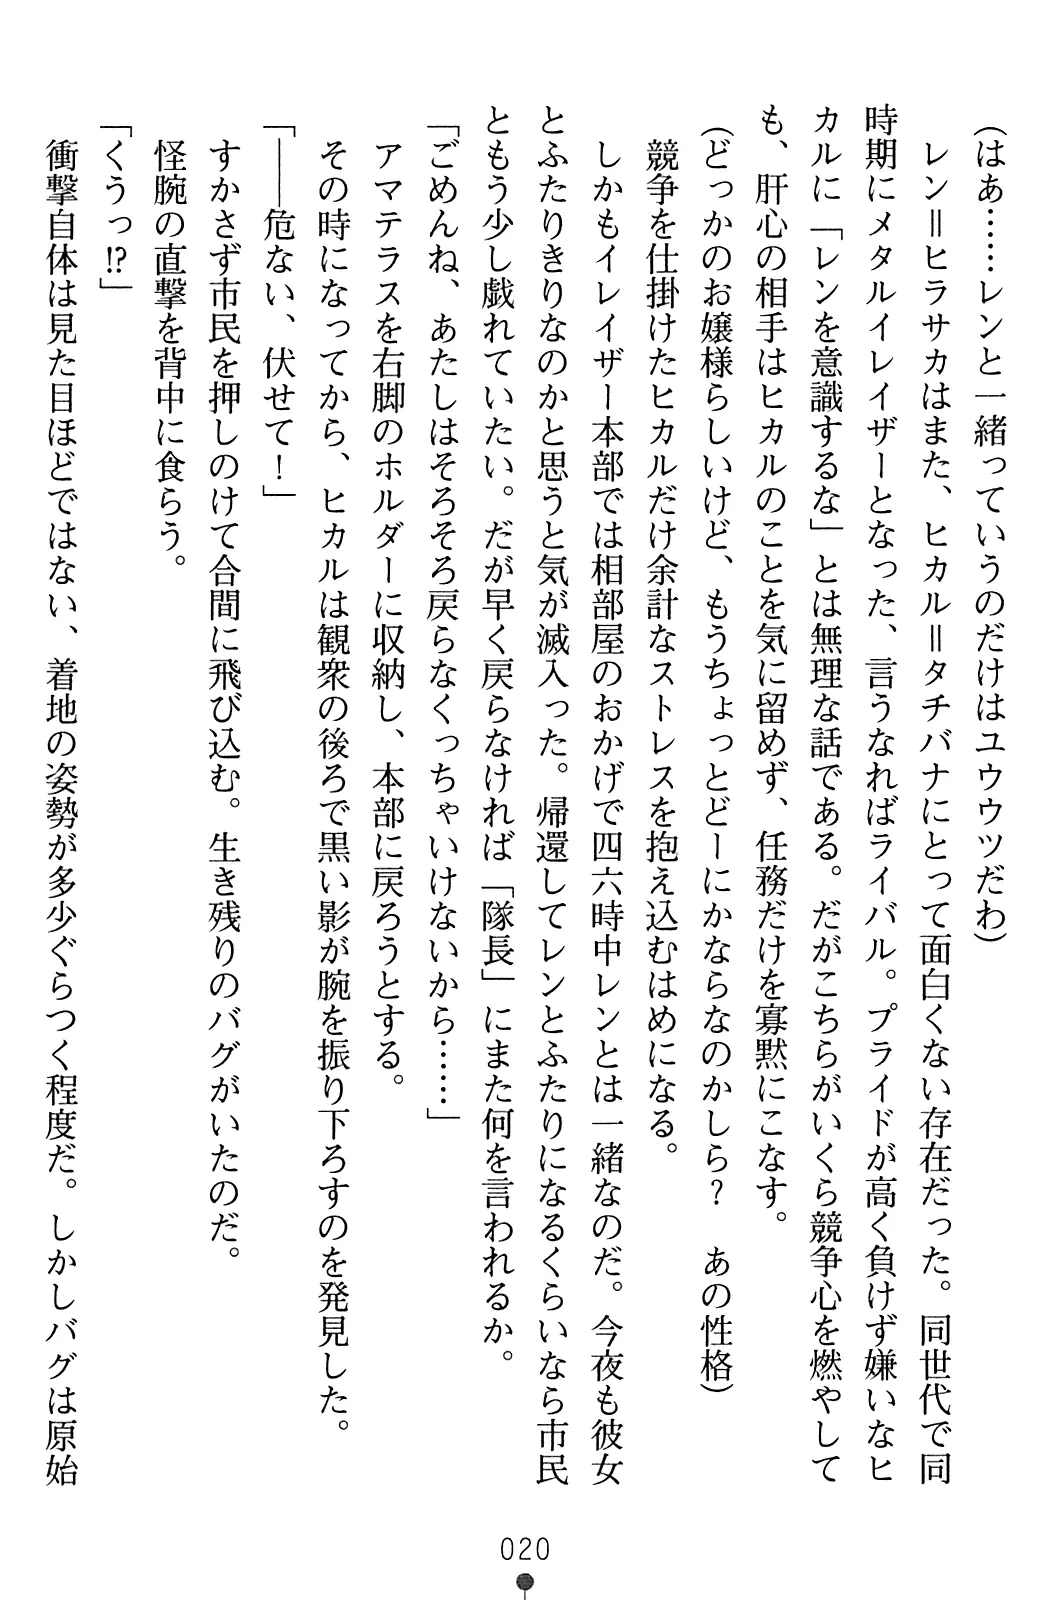 (はあ……レンと一緒っていうのだけはユウウツだわ)
レン＝ヒラサカはまた、ヒカル＝タチバナにとって面白くない存在だった。同世代で同
時期にメタルイレイザーとなった、言うなればライバル。プライドが高く負けず嫌いなヒ
カルに「レンを意識するな」とは無理な話である。だがこちらがいくら競争心を燃やして
も、肝心の相手はヒカルのことを気に留めず、任務だけを寡黙にこなす。
(どっかのお嬢様らしいけど、もうちょっとどーにかならなのかしら？　あの性格)
競争を仕掛けたヒカルだけ余計なストレスを抱え込むはめになる。
しかもイレイザー本部では相部屋のおかげで四六時中レンとは一緒なのだ。今夜も彼女
とふたりきりなのかと思うと気が滅入った。帰還してレンとふたりになるくらいなら市民
ともう少し戯れていたい。だが早く戻らなければ「隊長」にまた何を言われるか。
「ごめんね、あたしはそろそろ戻らなくっちゃいけないから……」
アマテラスを右脚のホルダーに収納し、本部に戻ろうとする。
その時になってから、ヒカルは観衆の後ろで黒い影が腕を振り下ろすのを発見した。
「――危ない、伏せて！」
すかさず市民を押しのけて合間に飛び込む。生き残りのバグがいたのだ。
怪腕の直撃を背中に食らう。
「くうっ!?」
衝撃自体は見た目ほどではない、着地の姿勢が多少ぐらつく程度だ。しかしバグは原始
020